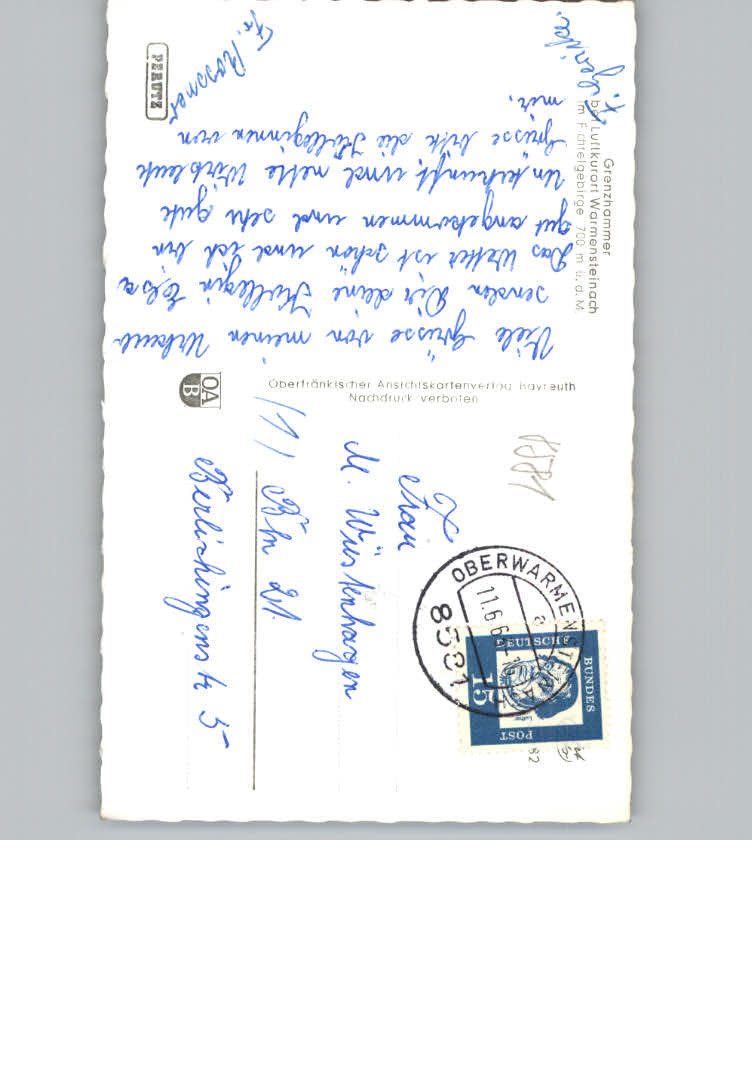 Grenzhammer
bei Luftkurort Warmensteinach
im Fichtelgebirge 700 m ü. d. M.
Viele Grüsse von meinen Urlaub
senden Dir deine Kollegin Elsa
Das Wetter ist schön und ich bin
gut angekommen und sehr gute
Unterkunft und nette Wirtsleute
Grüsse bitte die Kolleginnen von
mir.
Fr. Rossner
PERUTZ
Oberfränkischer Ansichtskartenverlag Bayreuth
Nachdruck verboten
OA
B
8581
Frau
M. Wüstenhagen
/1/ Bln 21.
Berlichingenstr 5
OBERWARMENSTEINACH
11.6.6
8581
DEUTSCHE
BUNDES
POST
15
Luther
82